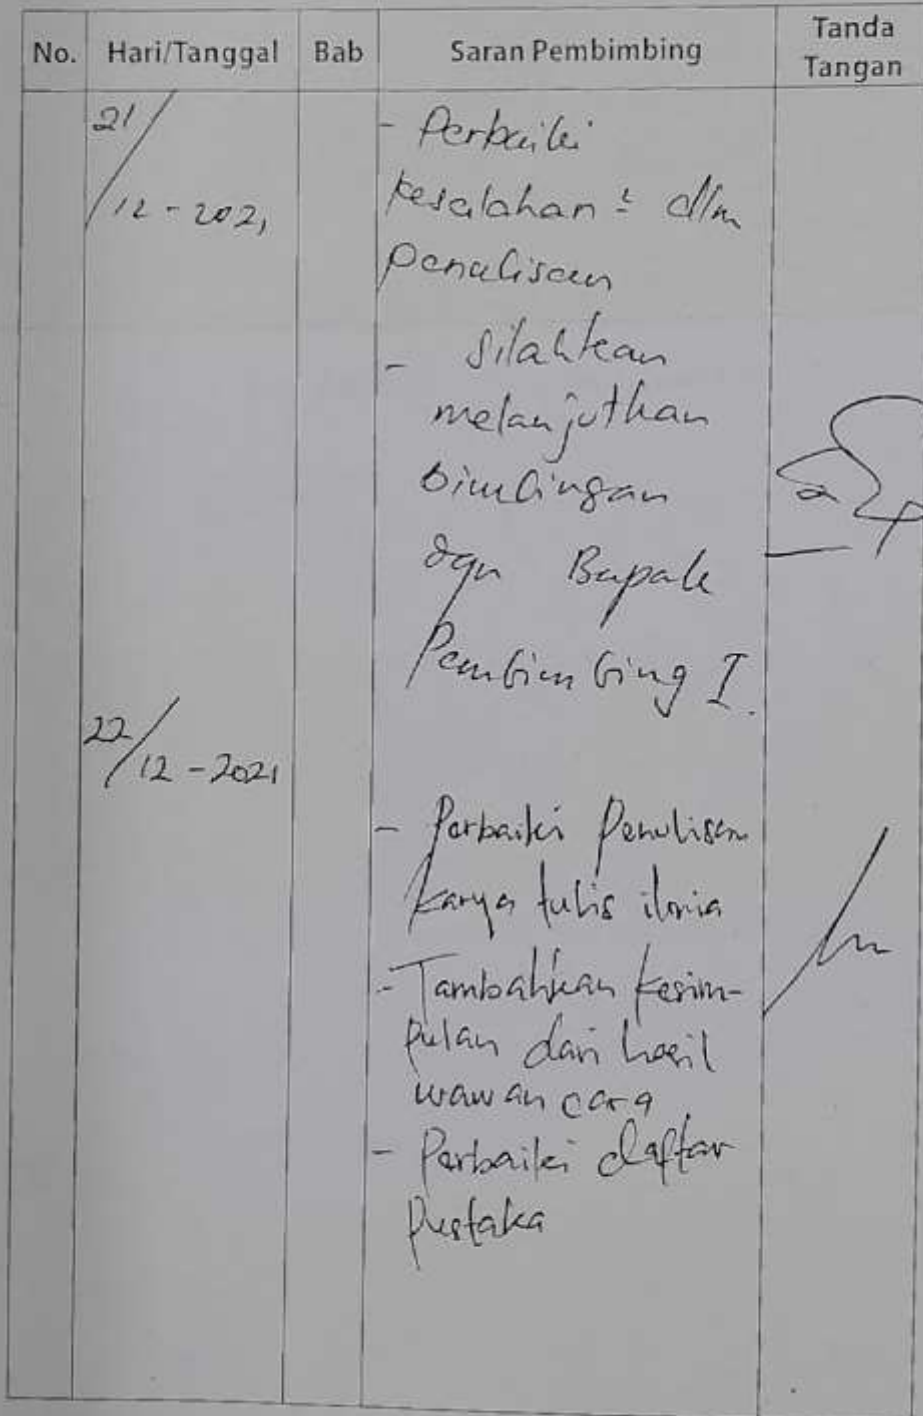 No. Hari/Tanggal Bab Saran Pembimbing Tanda Tangan
21/12-2021
- Perbaiki
kesalahan² dlm
penulisan
- silahkan
melanjutkan
bimbingan
dgn Bapak
Pembimbing I.
22/12-2021
- Perbaiki Penulisan
karya tulis ilmia
- Tambahkan kesim-
pulan dari hasil
wawancara
- Perbaiki daftar
Pustaka